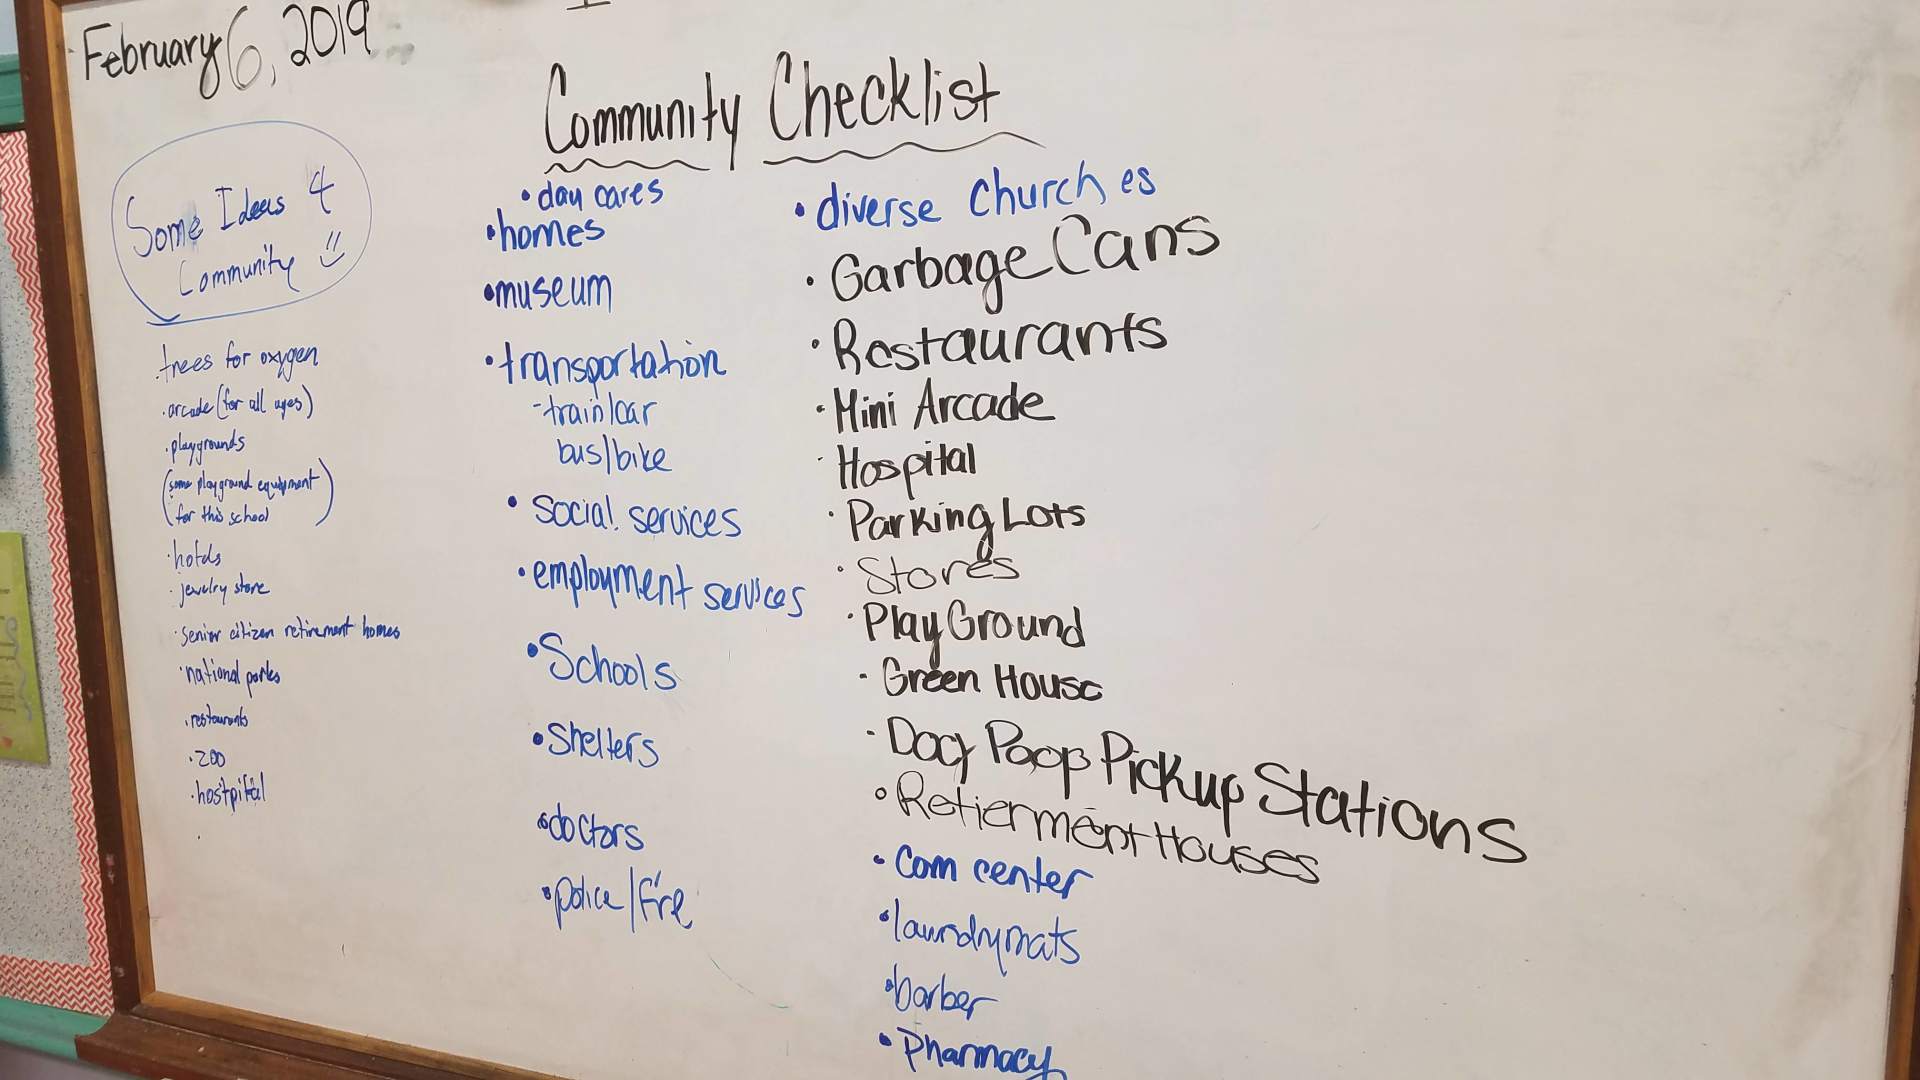 February 6, 2019
Community Checklist
Some Ideas 4
Community
trees for oxygen
• arcade (for all ages)
• playgrounds
(some playground equipment
for this school)
• hotels
• jewelry store
• senior citizen retirement homes
• national parks
• restaurants
• zoo
• hostpital
• day cares
• homes
• museum
• transportation
- train/car
bus/bike
• social services
• employment services
• Schools
• Shelters
• doctors
• police/fire
• diverse churches
• Garbage Cans
• Restaurants
• Mini Arcade
• Hospital
• Parking Lots
• Stores
• Play Ground
• Green House
• Dog Poop Pickup Stations
• Retierment Houses
• Com center
• laundrymats
• barber
• Pharmacy